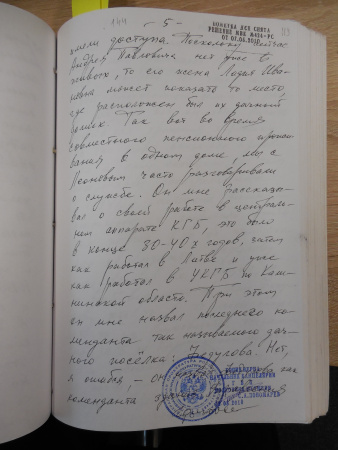 144
- 5 -
ПОМЕТКА ДСП СНЯТА
РЕШЕНИЕ МВК №424-РС
ОТ 01.06.2010
ками доступа. Поскольку сейчас
Андрея Павловича нет уже в
живых, то его жена Лидия Ива-
новна может показать то место,
где расположен был их дачный
домик. Так вот во время
совместного пенсионного прожи-
вания в одном доме, мы с
часто разговаривали
о службе. Он мне рассказы-
вал о своей работе в централь-
ном аппарате КГБ, это было
в конце 30-40х годов, затем
как работал в Литве и уже
как работал в УКГБ по Кали-
нинской области. При этом
он мне назвал последнего ко-
менданта так называемого дач-
ного посёлка: Нет,
я ошибся, - он
коменданта